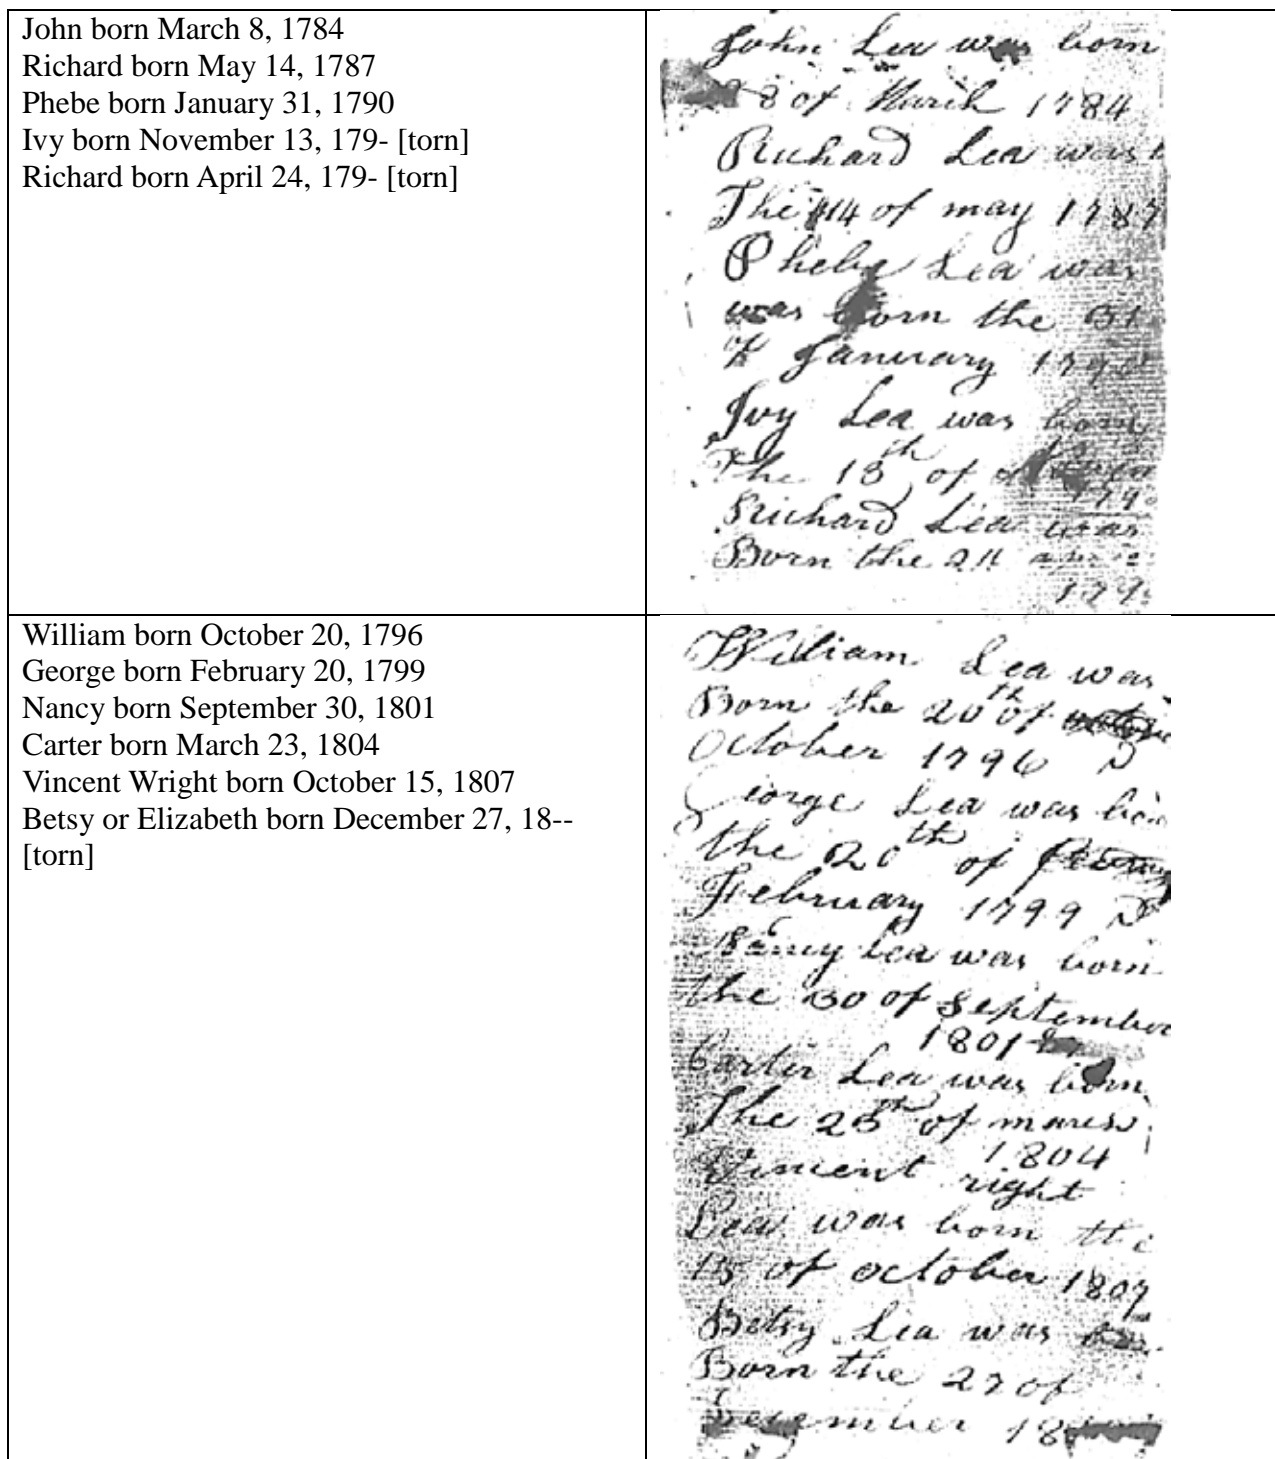 John born March 8, 1784
Richard born May 14, 1787
Phebe born January 31, 1790
Ivy born November 13, 179- [torn]
Richard born April 24, 179- [torn]
John Lea was born
8 of March 1784
Richard Lea was
The 14 of may 1787
Phebe Lea was
was born the 31
of January 1790
Ivy Lea was born
The 13th of
179
Richard Lea was
Born the 24
179
William born October 20, 1796
George born February 20, 1799
Nancy born September 30, 1801
Carter born March 23, 1804
Vincent Wright born October 15, 1807
Betsy or Elizabeth born December 27, 18--
[torn]
William Lea was
Born the 20th of
October 1796
George Lea was
the 20th of
February 1799
Nancy Lea was born
the 30 of September
1801
Carter Lea was born
The 23th of march
1804
Vincent right
Lea was born the
15 of october 1807
Betsy Lea was
Born the 27 of
December 18